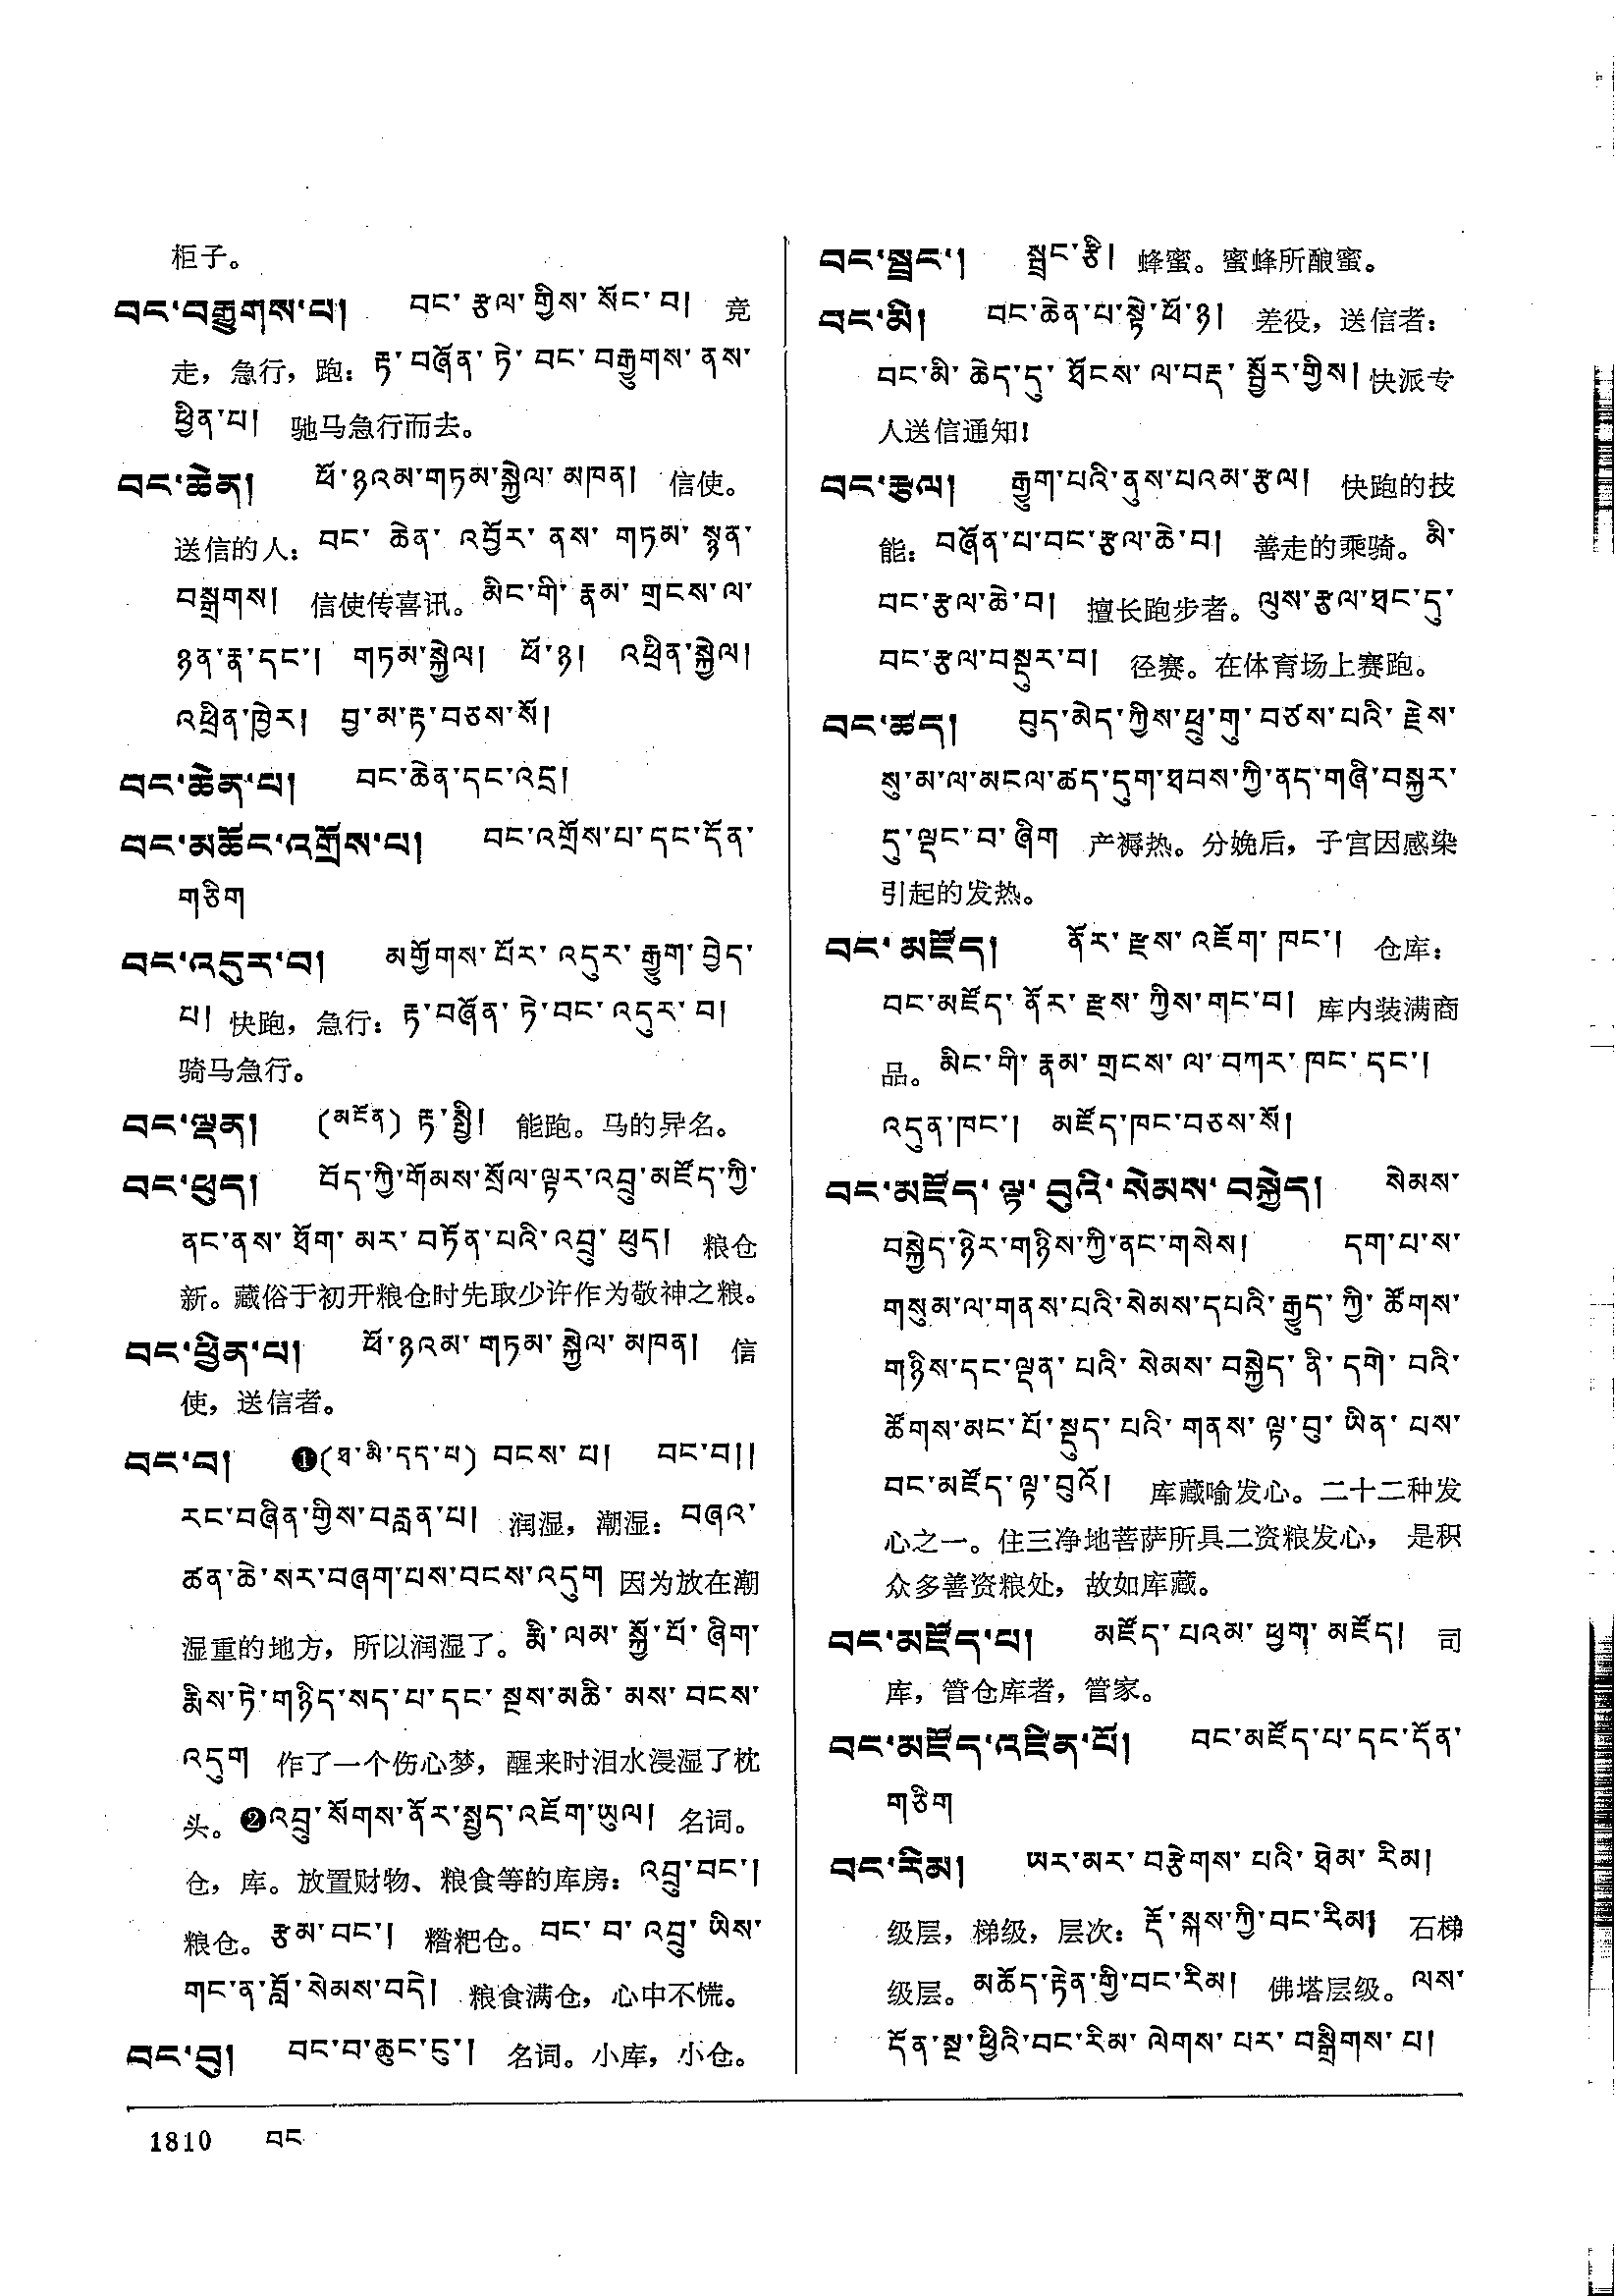 柜子。
བང་བརྒྱུགས་པ། བང་རྩལ་གྱིས་སོང་བ། 竞
走，急行，跑：རྟ་བཞོན་ཏེ་བང་བརྒྱུགས་ནས་
ཕྱིན་པ། 驰马急行而去。
བང་ཆེན། ཕོ་ཉའམ་གཏམ་སྐྱེལ་མཁན། 信使。
送信的人：བང་ཆེན་འབྱོར་ནས་གཏམ་སྙན་
བསྒྲགས། 信使传喜讯。མིང་གི་རྣམ་གྲངས་ལ་
ཉན་རྣ་དང་། གཏམ་སྐྱེལ། ཕོ་ཉ། འཕྲིན་སྐྱེལ།
འཕྲིན་ཁྱེར། བྱ་མ་རྟ་བཅས་སོ།
བང་ཆེན་པ། བང་ཆེན་དང་འདྲ།
བང་མཆོང་འགྲོས་པ། བང་འགྲོས་པ་དང་དོན་
གཅིག
བང་འདུར་བ། མགྱོགས་པོར་འདུར་རྒྱུག་བྱེད་
པ། 快跑，急行：རྟ་བཞོན་ཏེ་བང་འདུར་བ།
骑马急行。
བང་ལྡན། (མངོན) རྟ་སྤྱི། 能跑。马的异名。
བང་ཕུད། བོད་ཀྱི་གོམས་སྲོལ་ལྟར་འབྲུ་མཛོད་ཀྱི་
ནང་ནས་ཐོག་མར་བཏོན་པའི་འབྲུ་ཕུད། 粮仓
新。藏俗于初开粮仓时先取少许作为敬神之粮。
བང་ཕྱིན་པ། ཕོ་ཉའམ་གཏམ་སྐྱེལ་མཁན། 信
使，送信者。
བང་བ། ❶(ཐ་མི་དད་པ) བངས་པ། བང་བ།།
རང་བཞིན་གྱིས་བརླན་པ། 润湿，潮湿：བཞའ་
ཚན་ཆེ་སར་བཞག་པས་བངས་འདུག 因为放在潮
湿重的地方，所以润湿了。རྨི་ལམ་སྐྱོ་པོ་ཞིག་
རྨིས་ཏེ་གཉིད་སད་པ་དང་སྔས་མཆི་མས་བངས་
འདུག 作了一个伤心梦，醒来时泪水浸湿了枕
头。❷འབྲུ་སོགས་ནོར་སྤྱད་འཇོག་ཡུལ། 名词。
仓，库。放置财物、粮食等的库房：འབྲུ་བང་།
粮仓。རྩམ་བང་། 糌粑仓。བང་བ་འབྲུ་ཡིས་
གང་ན་བློ་སེམས་བདེ། 粮食满仓，心中不慌。
བང་བུ། བང་བ་ཆུང་ངུ་། 名词。小库，小仓。
བང་སྦྲང་། སྦྲང་རྩི། 蜂蜜。蜜蜂所酿蜜。
བང་མི། བང་ཆེན་པ་སྟེ་ཕོ་ཉ། 差役，送信者：
བང་མི་ཆེད་དུ་ཐོངས་ལ་བརྡ་སྦྱོར་གྱིས། 快派专
人送信通知！
བང་རྩལ། རྒྱུག་པའི་ནུས་པའམ་རྩལ། 快跑的技
能：བཞོན་པ་བང་རྩལ་ཆེ་བ། 善走的乘骑。མི་
བང་རྩལ་ཆེ་བ། 擅长跑步者。ལུས་རྩལ་ཐང་དུ་
བང་རྩལ་བསྡུར་བ། 径赛。在体育场上赛跑。
བང་ཚད། བུད་མེད་ཀྱིས་ཕྲུ་གུ་བཙས་པའི་རྗེས་
སུ་མ་ལ་མངལ་ཚད་དུག་ཐབས་ཀྱི་ནད་གཞི་བསྐྱར་
དུ་ལྡང་བ་ཞིག 产褥热。分娩后，子宫因感染
引起的发热。
བང་མཛོད། ནོར་རྫས་འཇོག་ཁང་། 仓库：
བང་མཛོད་ནོར་རྫས་ཀྱིས་གང་བ། 库内装满商
品。མིང་གི་རྣམ་གྲངས་ལ་བཀར་ཁང་དང་།
འདུན་ཁང་། མཛོད་ཁང་བཅས་སོ།
བང་མཛོད་ལྟ་བུའི་སེམས་བསྐྱེད། སེམས་
བསྐྱེད་ཉེར་གཉིས་ཀྱི་ནང་གསེས། དག་པ་ས་
གསུམ་ལ་གནས་པའི་སེམས་དཔའི་རྒྱུད་ཀྱི་ཚོགས་
གཉིས་དང་ལྡན་པའི་སེམས་བསྐྱེད་ནི་དགེ་བའི་
ཚོགས་མང་པོ་སྡུད་པའི་གནས་ལྟ་བུ་ཡིན་པས་
བང་མཛོད་ལྟ་བུའོ། 库藏喻发心。二十二种发
心之一。住三净地菩萨所具二资粮发心， 是积
众多善资粮处，故如库藏。
བང་མཛོད་པ། མཛོད་པའམ་ཕྱག་མཛོད། 司
库，管仓库者，管家。
བང་མཛོད་འཛིན་པོ། བང་མཛོད་པ་དང་དོན་
གཅིག
བང་རིམ། ཡར་མར་བརྩེགས་པའི་ཐེམ་རིམ།
级层，梯级，层次：རྡོ་སྐས་ཀྱི་བང་རིམ། 石梯
级层。མཆོད་རྟེན་གྱི་བང་རིམ། 佛塔层级。ལས་
དོན་སྔ་ཕྱིའི་བང་རིམ་ལེགས་པར་བསྒྲིགས་པ།
1810 བང